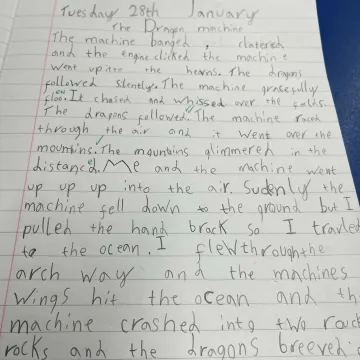 Tuesday 28th January
The Dragan machine
The machine banged, clatered
and the engine clicked the machine
went up into the heavns. The dragons
followed silently. The machine gracefully
flow. It chased and whissed over the fields.
The dragons followed. The machine raced
through the air and it went over the
mountins. The mountins glimmered in the
distance. Me and the machine went
up up up into the air. Sudenly the
machine fell down to the ground but I
pulled the hand brack so I travled
to the ocean. I flew through the
arch way and the machines
wings hit the ocean and th
machine crashed into two
rocks and the dragons